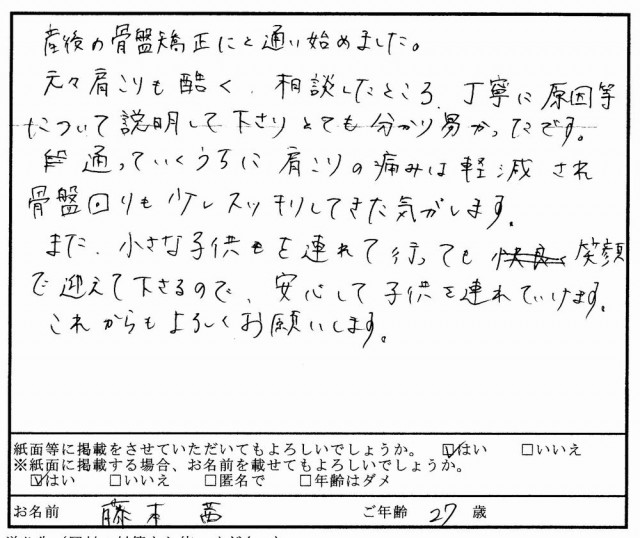 産後の骨盤矯正にと通い始めました。
元々肩こりも酷く、相談したところ、丁寧に原因等
について説明して下さりとても分かり易かったです。
通っていくうちに肩こりの痛みは軽減され
骨盤回りも少しスッキリしてきた気がします。
また、小さな子供もを連れて行っても 笑顔
で迎えて下さるので、安心して子供を連れていけます。
これからもよろしくお願いします。
紙面等に掲載をさせていただいてもよろしいでしょうか。 ☑はい □いいえ
※紙面に掲載する場合、お名前を載せてもよろしいでしょうか。
☑はい □いいえ □匿名で □年齢はダメ
お名前 藤本 茜 ご年齢 27 歳